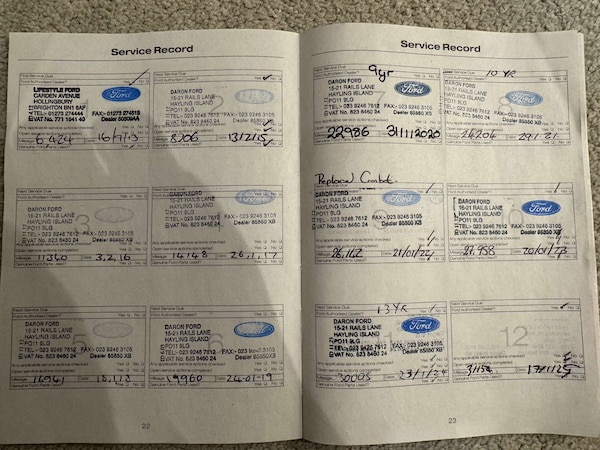 Service Record
Next Service Due
Ford Authorised Dealer? Yes No
LIFESTYLE FORD
CARDEN AVENUE
HOLLINGBURY
BRIGHTON BN1 8AF
TEL- 01273 274444 FAX- 01273 274515
VAT No. 771 1041 40
Ford
Any applicable service actions checked
Open service actions completed
Mileage 6,424 Date
Genuine Ford Parts Used?
Next Service Due
Ford Authorised Dealer? Yes No
DARON FORD
15-21 RAILS LANE
HAYLING ISLAND
PO11 9LG
TEL- 023 9246 7612 FAX- 023 9246 3105
VAT No. 823 8460 24 Dealer 85850 XB
Mileage 8,206 Date 13/2/15
Genuine Ford Parts Used?
3
DARON FORD
15-21 RAILS LANE
HAYLING ISLAND
PO11 9LG
TEL- 023 9246 7612 FAX- 023 9246 3105
VAT No. 823 8460 24 Dealer 85850 XB
Mileage 11340 Date 3,2,16
Genuine Ford Parts Used?
DARON FORD
15-21 RAILS LANE
HAYLING ISLAND
PO11 9LG
TEL- 023 9246 7612 FAX- 023 9246 3105
VAT No. 823 8460 24 Dealer 85850 XB
Mileage 14,148 Date 26,1,17
Genuine Ford Parts Used?
Next Service Due
Ford Authorised Dealer? Yes No
DARON FORD
15-21 RAILS LANE
HAYLING ISLAND
PO11 9LG
TEL- 023 9246 7612 FAX- 023 9246 3105
VAT No. 823 8460 24 Dealer 85850 XB
Mileage 16941 Date
Genuine Ford Parts Used?
Next Service Due
Ford Authorised Dealer? Yes No
DARON FORD
15-21 RAILS LANE
HAYLING ISLAND
PO11 9LG
TEL- 023 9246 7612 FAX- 023 9246 3105
VAT No. 823 8460 24 Dealer 85850 XB
Mileage 19960 Date 24-01-19
Genuine Ford Parts Used?
22
Service Record
9yr
DARON FORD
15-21 RAILS LANE
HAYLING ISLAND
PO11 9LG
TEL- 023 9246 7612 FAX- 023 9246 3105
VAT No. 823 8460 24 Dealer 85850 XB
Ford
22986
Genuine Ford Parts Used?
Next Service Due 10 YR
Ford Authorised Dealer? Yes No
8
DARON FORD
15-21 RAILS LANE
HAYLING ISLAND
PO11 9LG
TEL- 023 9246 7612 FAX- 023 9246 3105
VAT No. 823 8460 24 Dealer 85850 XB
Ford
Mileage 24204 Date
Genuine Ford Parts Used?
Replaced
DARON FORD
15-21 RAILS LANE
HAYLING ISLAND
PO11 9LG
TEL- 023 9246 7612 FAX- 023 9246 3105
VAT No. 823 8460 24 Dealer 85850 XB
Mileage 26,142 Date 21/01/22
Genuine Ford Parts Used?
Next Service Due
Ford Authorised Dealer? Yes No
DARON FORD
15-21 RAILS LANE
HAYLING ISLAND
PO11 9LG
TEL- 023 9246 7612 FAX- 023 9246 3105
VAT No. 823 8460 24 Dealer 85850 XB
Ford
Mileage Date 20/01/23
Genuine Ford Parts Used?
Next Service Due 13 YR
Ford Authorised Dealer? Yes No
DARON FORD
15-21 RAILS LANE
HAYLING ISLAND
PO11 9LG
TEL- 023 9246 7612 FAX- 023 9246 3105
VAT No. 823 8460 24 Dealer 85850 XB
Ford
Any applicable service actions checked
Open service actions completed
Mileage 30005 Date 23/1/24
Genuine Ford Parts Used?
Next Service Due Yes No
Ford Authorised Dealer?
12
Any applicable service actions checked
Open service actions completed
Mileage Date 17/1/25
Genuine Ford Parts Used?
23